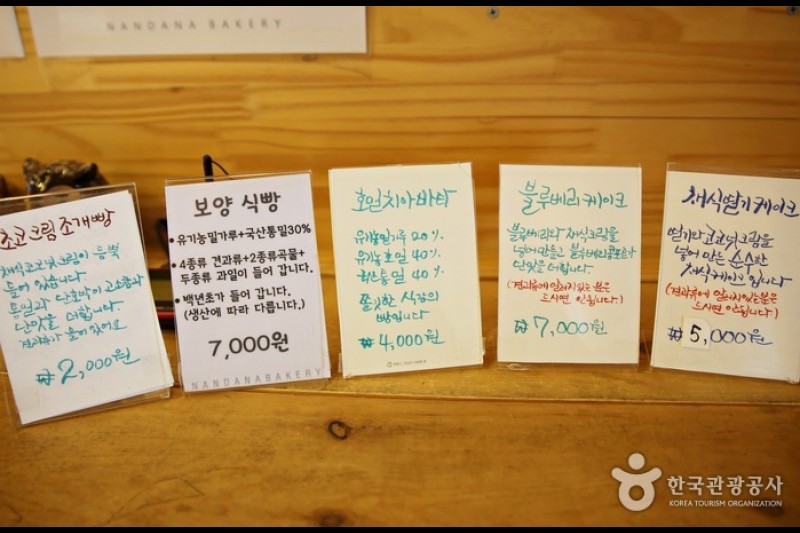 NANDANA BAKERY
초코크림 조개빵
채식코코넛크림이 듬뿍
들어 있습니다.
통밀과 단호박이 고소함과
단맛을 더합니다.
견과류가 들어 있어요
₩2,000원
보양 식빵
• 유기농밀가루+국산통밀30%
• 4종류 견과류+2종류곡물+
두종류 과일이 들어 갑니다.
• 백년초가 들어 갑니다.
(생산에 따라 다릅니다.)
7,000원
NANDANABAKERY
호밀치아바타
유기농밀가루 20%
유기농호밀 40%
국산통밀 40%
쫄깃한 식감의
빵입니다
₩4,000원
블루베리 케이크
블루베리와 채식크림을
넣어 만들고 블루베리콩포트가
단맛을 더합니다.
(견과류에 알러지있는분은
드시면 안됩니다.)
₩7,000원
채식딸기케이크
딸기와 코코넛크림을
넣어 만든 순수한
채식케이크 입니다
(견과류에 알러지있는분은
드시면 안됩니다.)
₩5,000원
한국관광공사
KOREA TOURISM ORGANIZATION